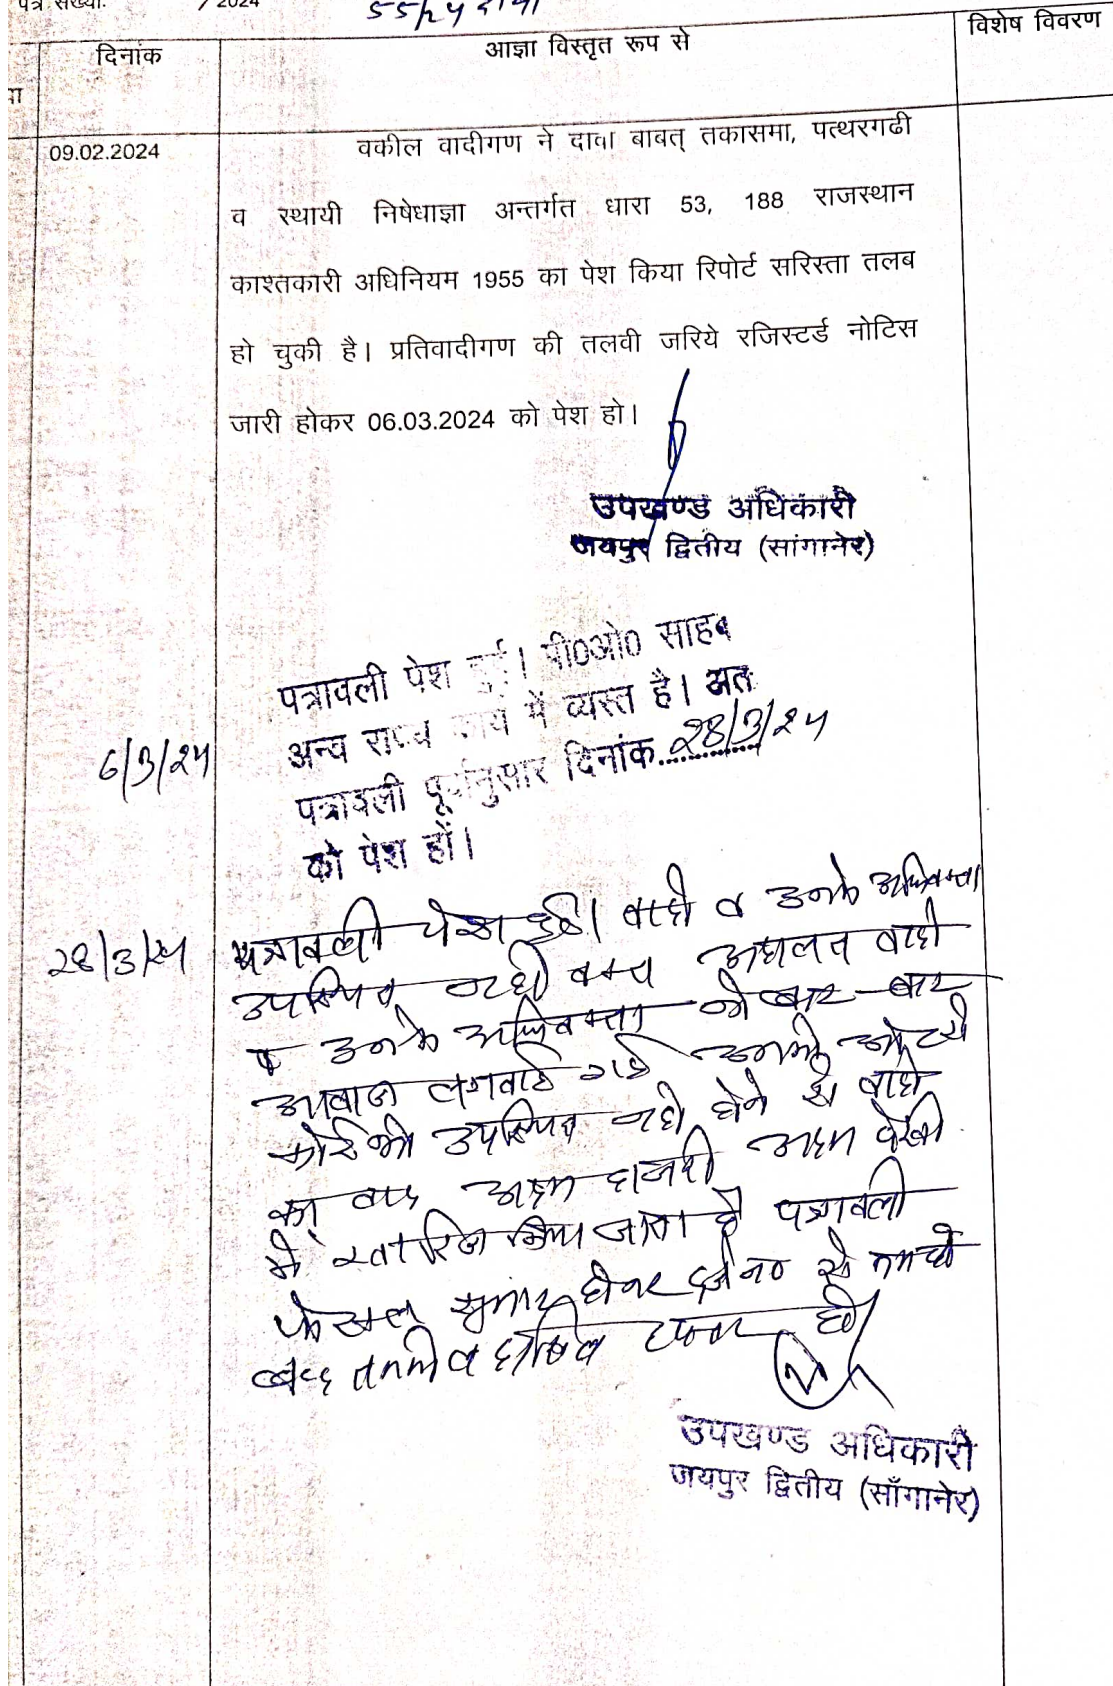 पत्र संख्या. / 2024 55/24 दावा
दिनांक
आज्ञा विस्तृत रूप से
विशेष विवरण
09.02.2024
वकील वादीगण ने दावा बाबत् तकासमा, पत्थरगढी
व स्थायी निषेधाज्ञा अन्तर्गत धारा 53, 188 राजस्थान
काश्तकारी अधिनियम 1955 का पेश किया रिपोर्ट सरिस्ता तलब
हो चुकी है। प्रतिवादीगण की तलवी जरिये रजिस्टर्ड नोटिस
जारी होकर 06.03.2024 को पेश हो।
उपखण्ड अधिकारी
जयपुर द्वितीय (सांगानेर)
6/3/24
पत्रावली पेश हुई। पी0ओ0 साहब
अन्य राज्य कार्य में व्यस्त है। अत
पत्रावली पूर्वानुसार दिनांक 28/3/24
को पेश हों।
28/3/24
पत्रावली पेश हुई। वादी व उनके अधिवक्ता
उपस्थित नही वक्त अदालत वादी
व उनके अधिवक्ता को बार-बार
आवाज लगवाई गई उनकी ओर से
कोई भी उपस्थित नही होने से वादी
का वाद अदम हाजरी अदम पैरवी
मे खारिज किया जाता है पत्रावली
फैसल शुमार होकर दर्ज न० से कम हो
बाद तकमील दाखिल दफ्तर हो।
उपखण्ड अधिकारी
जयपुर द्वितीय (साँगानेर)